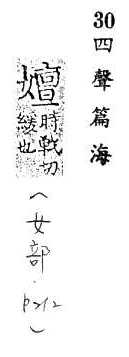 30 四聲篇海
嬗 時戰切
緩也
(女部・p212)